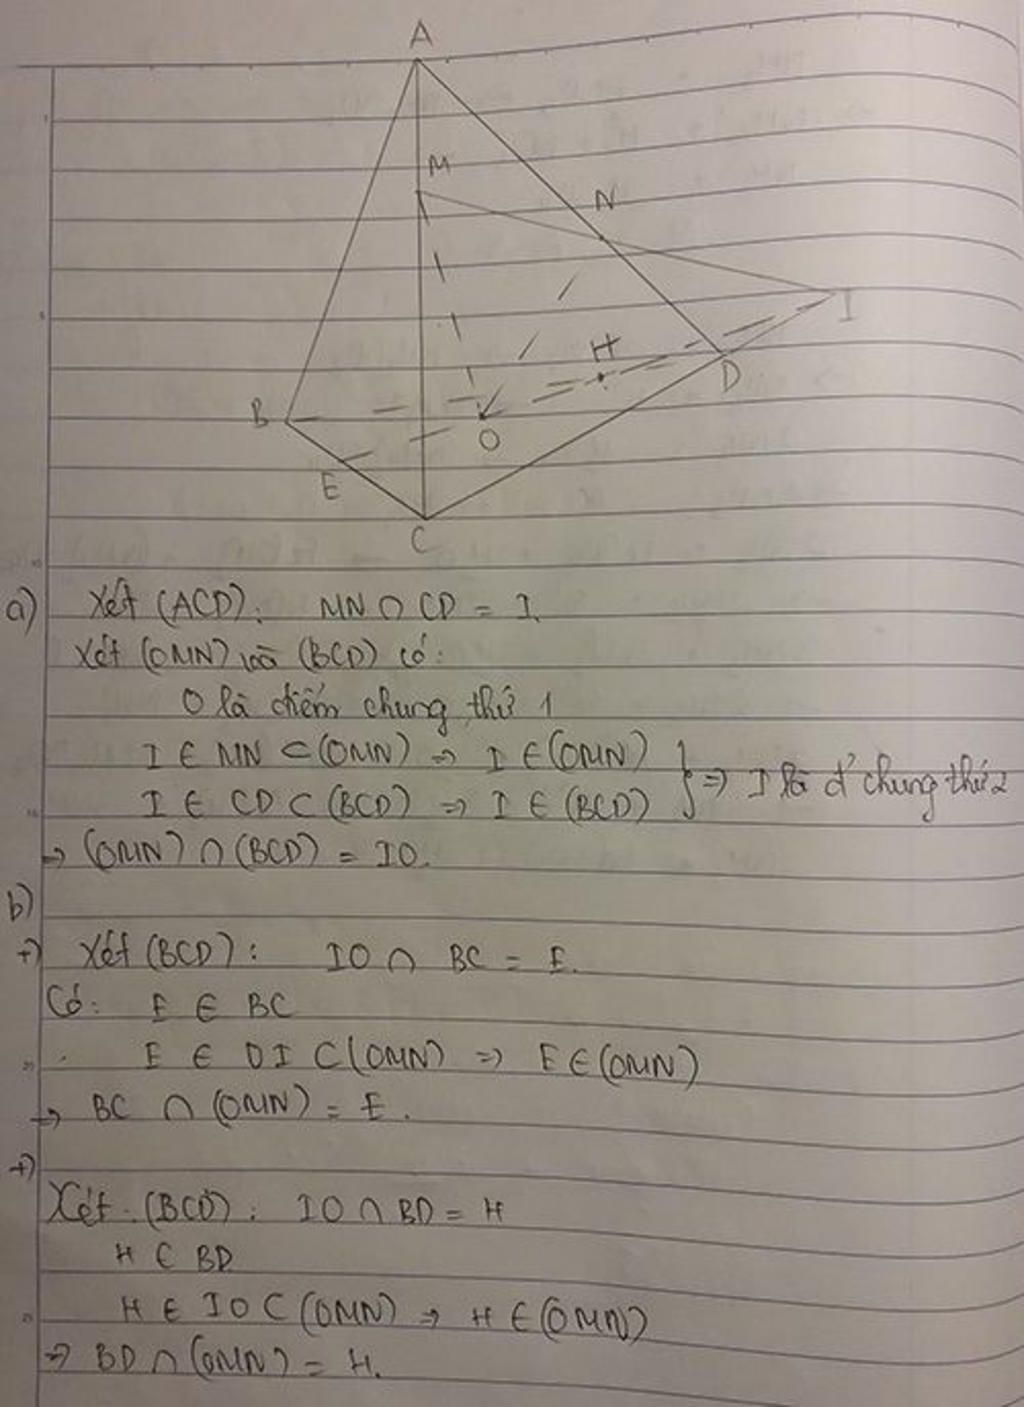 A
M
N
I
H
D
B
O
E
C
a) Xét (ACD): MN ∩ CD = I.
Xét (OMN) và (BCD) có:
O là điểm chung thứ 1
I ∈ MN ⊂ (OMN) => I ∈ (OMN)
I ∈ CD ⊂ (BCD) => I ∈ (BCD) } => I là đ' chung thứ 2
=> (OMN) ∩ (BCD) = IO.
b)
+) Xét (BCD): IO ∩ BC = E.
Có: E ∈ BC
E ∈ OI ⊂ (OMN) => E ∈ (OMN)
=> BC ∩ (OMN) = E.
+)
Xét (BCD): IO ∩ BD = H
H ∈ BD
H ∈ IO ⊂ (OMN) => H ∈ (OMN)
=> BD ∩ (OMN) = H.